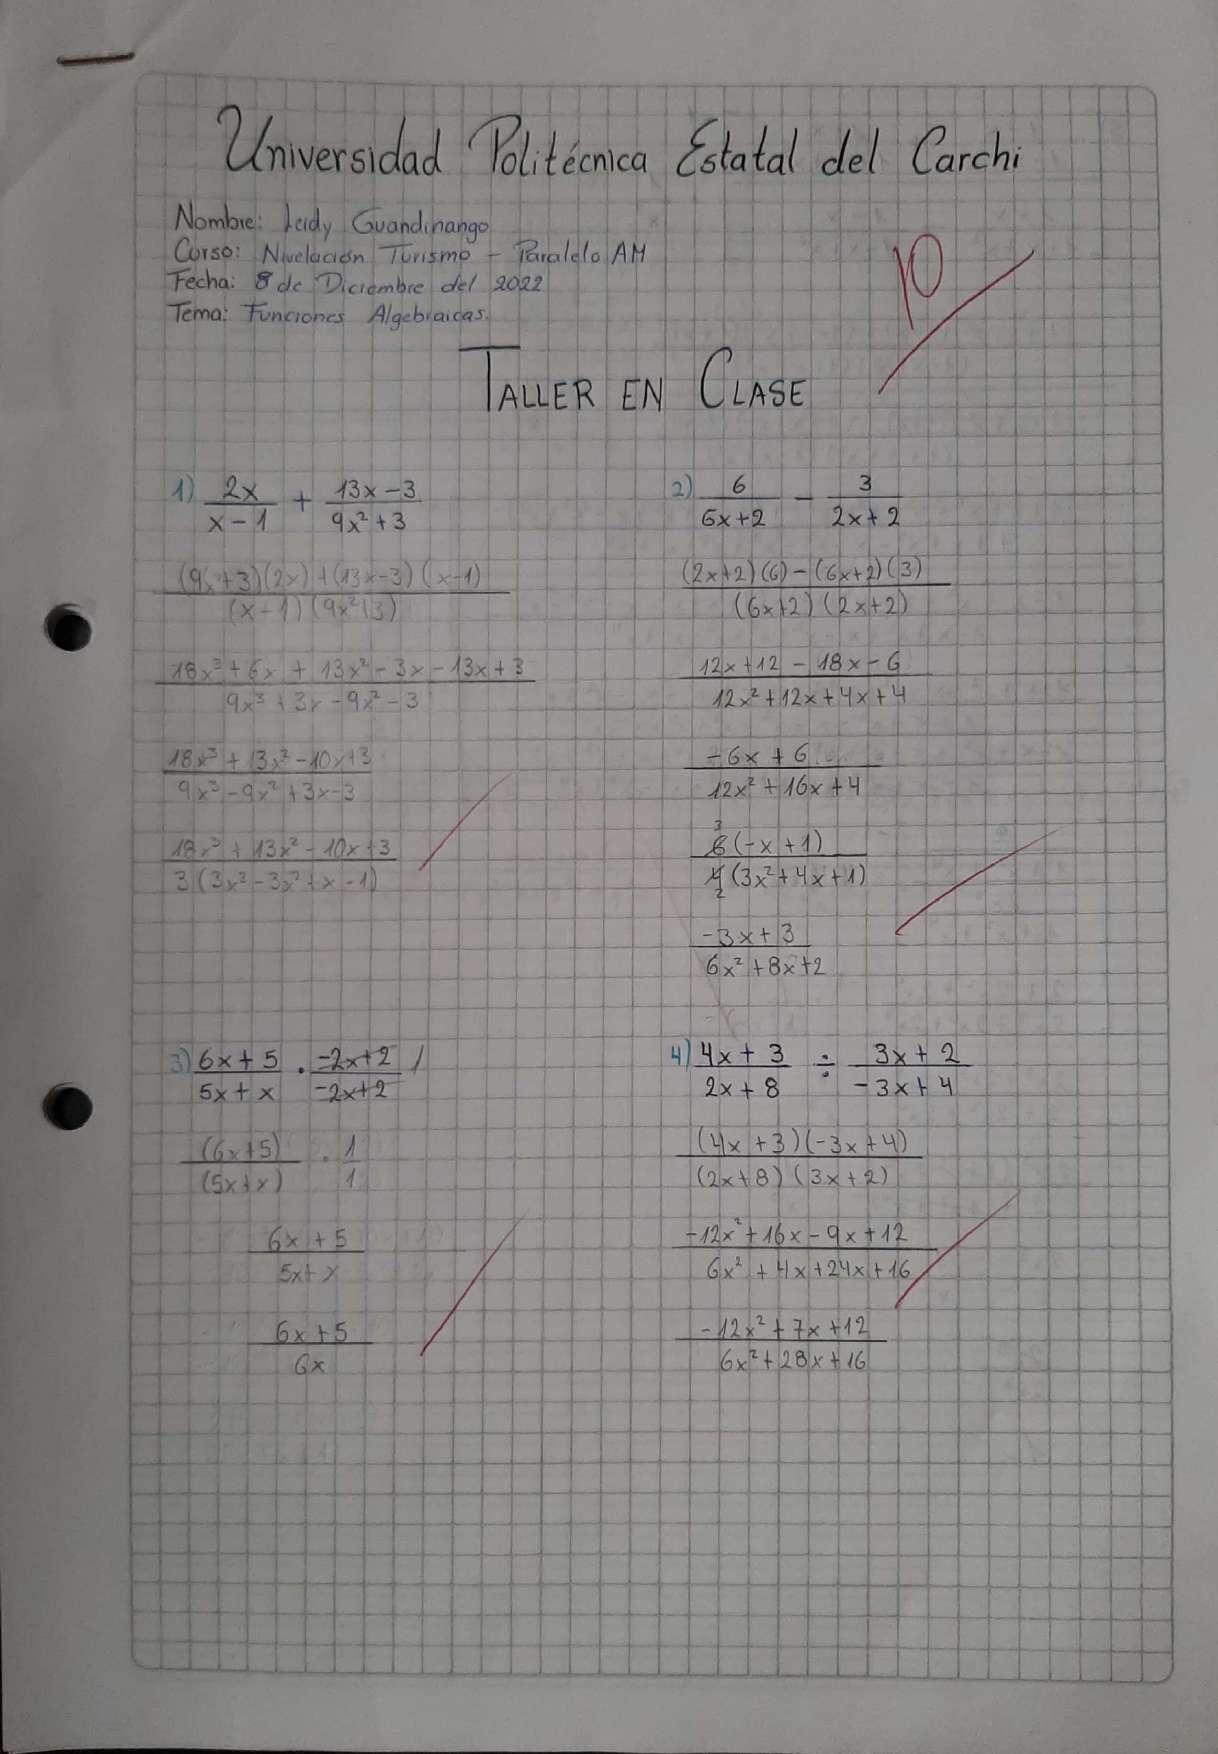 Universidad Politécnica Estatal del Carchi
Nombre: Leidy Guandinango
Curso: Nivelación Turismo - Paralelo AM
Fecha: 8 de Diciembre del 2022
Tema: Funciones Algebraicas.
10
TALLER EN CLASE
1) 2x/(x-1) + (13x-3)/(9x²+3)
((9x²+3)(2x)+(13x-3)(x-1))/((x-1)(9x²+3))
(18x³+6x+13x²-3x-13x+3)/(9x³+3x-9x²-3)
(18x³+13x²-10x+3)/(9x³-9x²+3x-3)
(18x³+13x²-10x+3)/(3(3x³-3x²+x-1))
2) 6/(6x+2) - 3/(2x+2)
((2x+2)(6)-(6x+2)(3))/((6x+2)(2x+2))
(12x+12-18x-6)/(12x²+12x+4x+4)
(-6x+6)/(12x²+16x+4)
3
6(-x+1)/4(3x²+4x+1)
2
(-3x+3)/(6x²+8x+2)
3) (6x+5)/(5x+x) · (-2x+2)/(-2x+2) 1
(6x+5)/(5x+x) · 1/1
(6x+5)/(5x+x)
(6x+5)/6x
4) (4x+3)/(2x+8) ÷ (3x+2)/(-3x+4)
((4x+3)(-3x+4))/((2x+8)(3x+2))
(-12x²+16x-9x+12)/(6x²+4x+24x+16)
(-12x²+7x+12)/(6x²+28x+16)